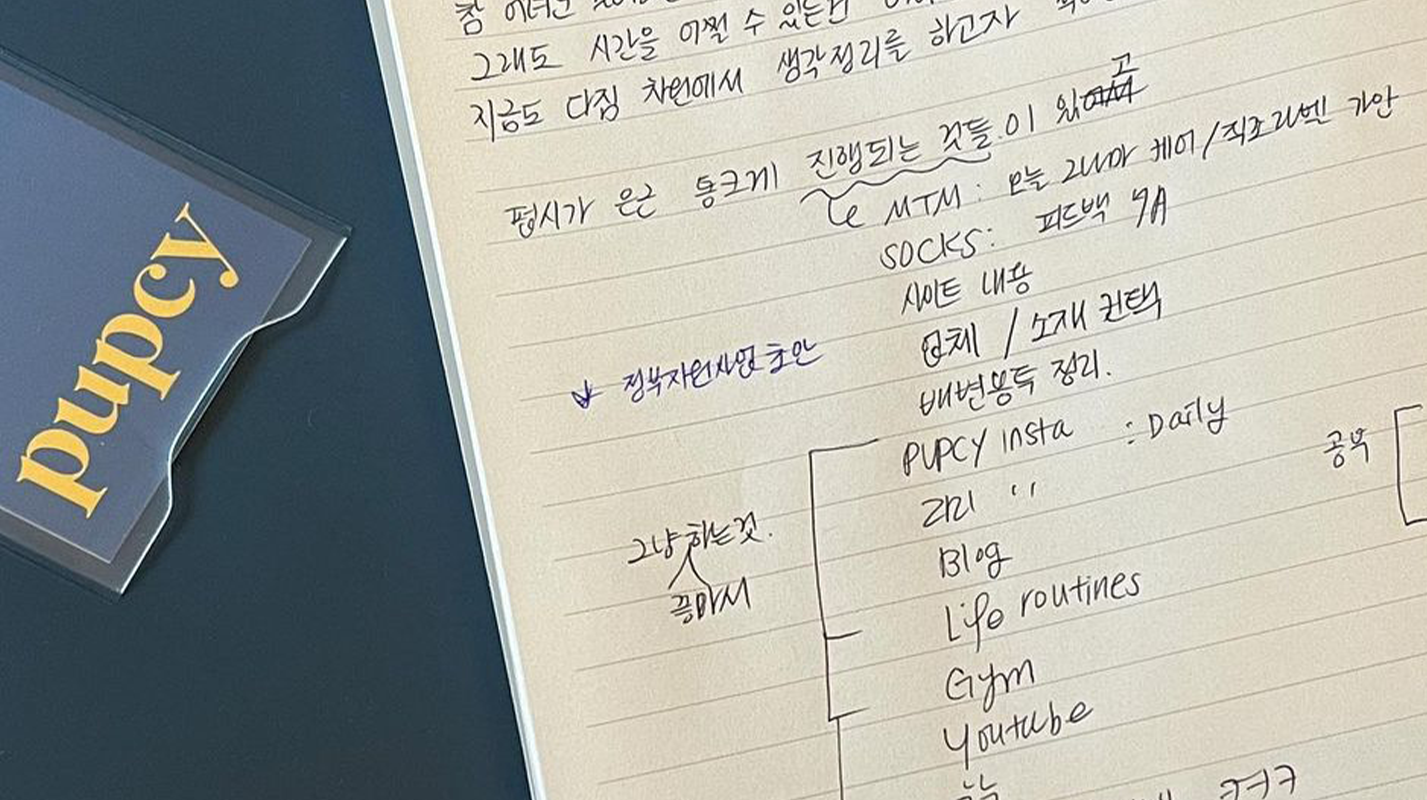 pupcy
참
그래도 시간을 어쩔 수 있는건
지금도 다짐 차원에서 생각정리를 하고자
고
펍시가 은근 통크게 진행되는 것들이 있
MTM: 오늘 그나마 케어/직조라벨 가안
SOCKS: 피드백 9A
사이트 내용
업체 / 소재 컨택
정부지원사업 초안
배변봉투 정리.
PUPCY insta : Daily
공부
라리 〃
그냥 하는것.
Blog
꾿마시
Life routines
Gym
Youtube